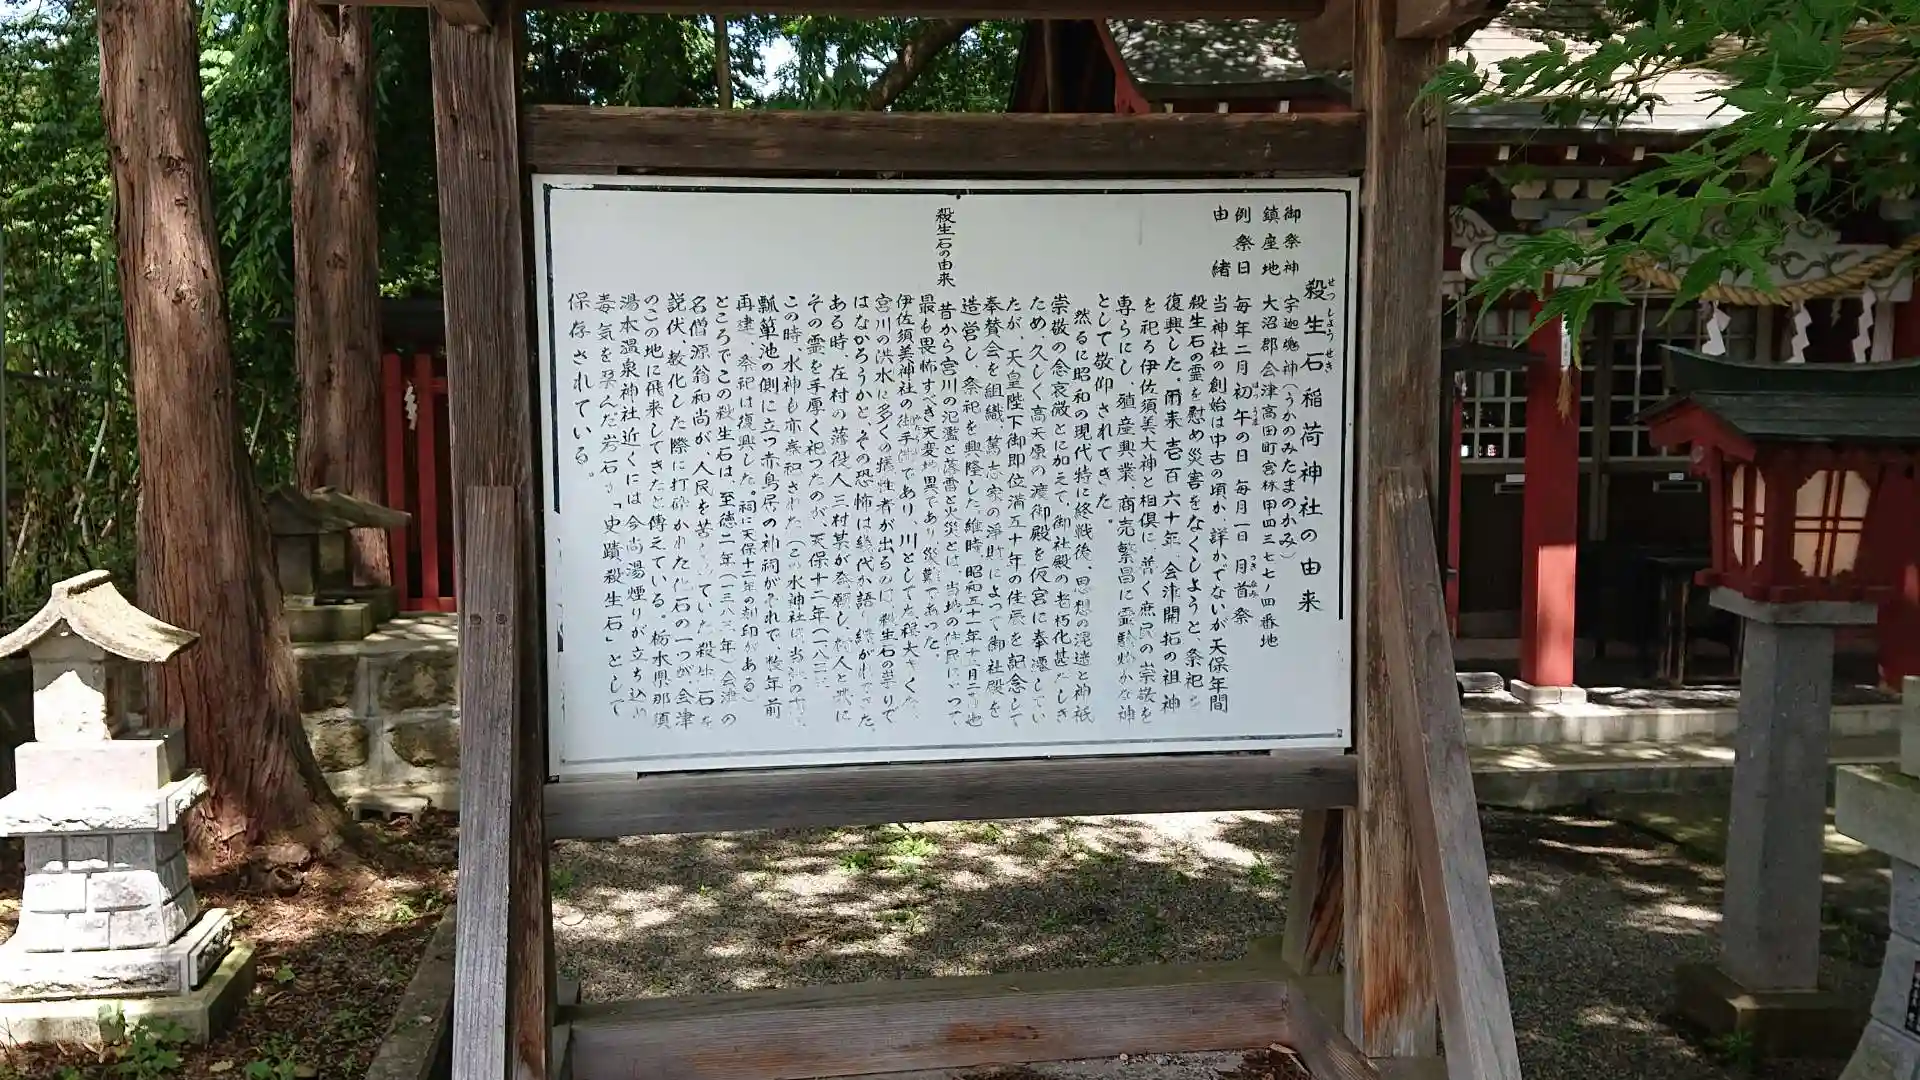 殺生石稲荷神社の由来
せっしょうせき
御祭神 宇迦魂神(うかのみたまのかみ)
鎮座地 大沼郡会津高田町宮林甲四三七七ノ四番地
例祭日 毎年二月初午の日 毎月一日 月首祭
はつうま
つきなみ
由緒 当神社の創始は中古の頃か、詳かでないが天保年間
殺生石の霊を慰め災害をなくしようと、祭祀を
復興した。爾来壱百六十年、会津開拓の祖神
を祀る伊佐須美大神と相倶に、普く庶民の崇敬を
専らにし、殖産興業、商売繁昌に霊験灼かな神
として敬仰されてきた。
然るに昭和の現代特に終戦後、思想の混迷と神祇
崇敬の念衰微とに加えて、御社殿の老朽化甚だしき
ため、久しく高天原の渡御殿を仮宮に奉遷してい
たが、天皇陛下御即位満五十年の佳辰を記念して
奉賛会を組織、篤志家の浄財によって御社殿を
造営し、祭祀を興隆した。維時、昭和五十一年十二月二十 也
殺生石の由来
昔から宮川の氾濫と落雷と火災とは、当地の住民にとって
最も畏怖すべき天変地異であり災難であった。
伊佐須美神社の御手洗であり、川としてた程大きくな
宮川の洪水に多くの犠牲者が出るのは、殺生石の祟りで
はなかろうかと、その恐怖は幾代か語り継がれてきた。
ある時、在村の薄役人三村某が発願し、村人と共に
その霊を手厚く祀ったのが、天保十二年(一八
この時、水神も亦合祀された(この水神社は当
瓢箪池の側に立つ赤鳥居の神祠がそれで数年前
再建、祭祀は復興した。祠に天保十二年の刻印がある)
ところでこの殺生石は、至徳二年(一三八三年)会津の
名僧源翁和尚が、人民を苦しめていた殺生石を
説伏、教化した際に打砕かれた化石の一つが会津
のこの地に飛来してきたと傳えている。栃木県那須
湯本温泉神社近くには今尚湯煙りが立ち込め
毒気を孕んだ岩石が「史蹟殺生石」として
保存されている。